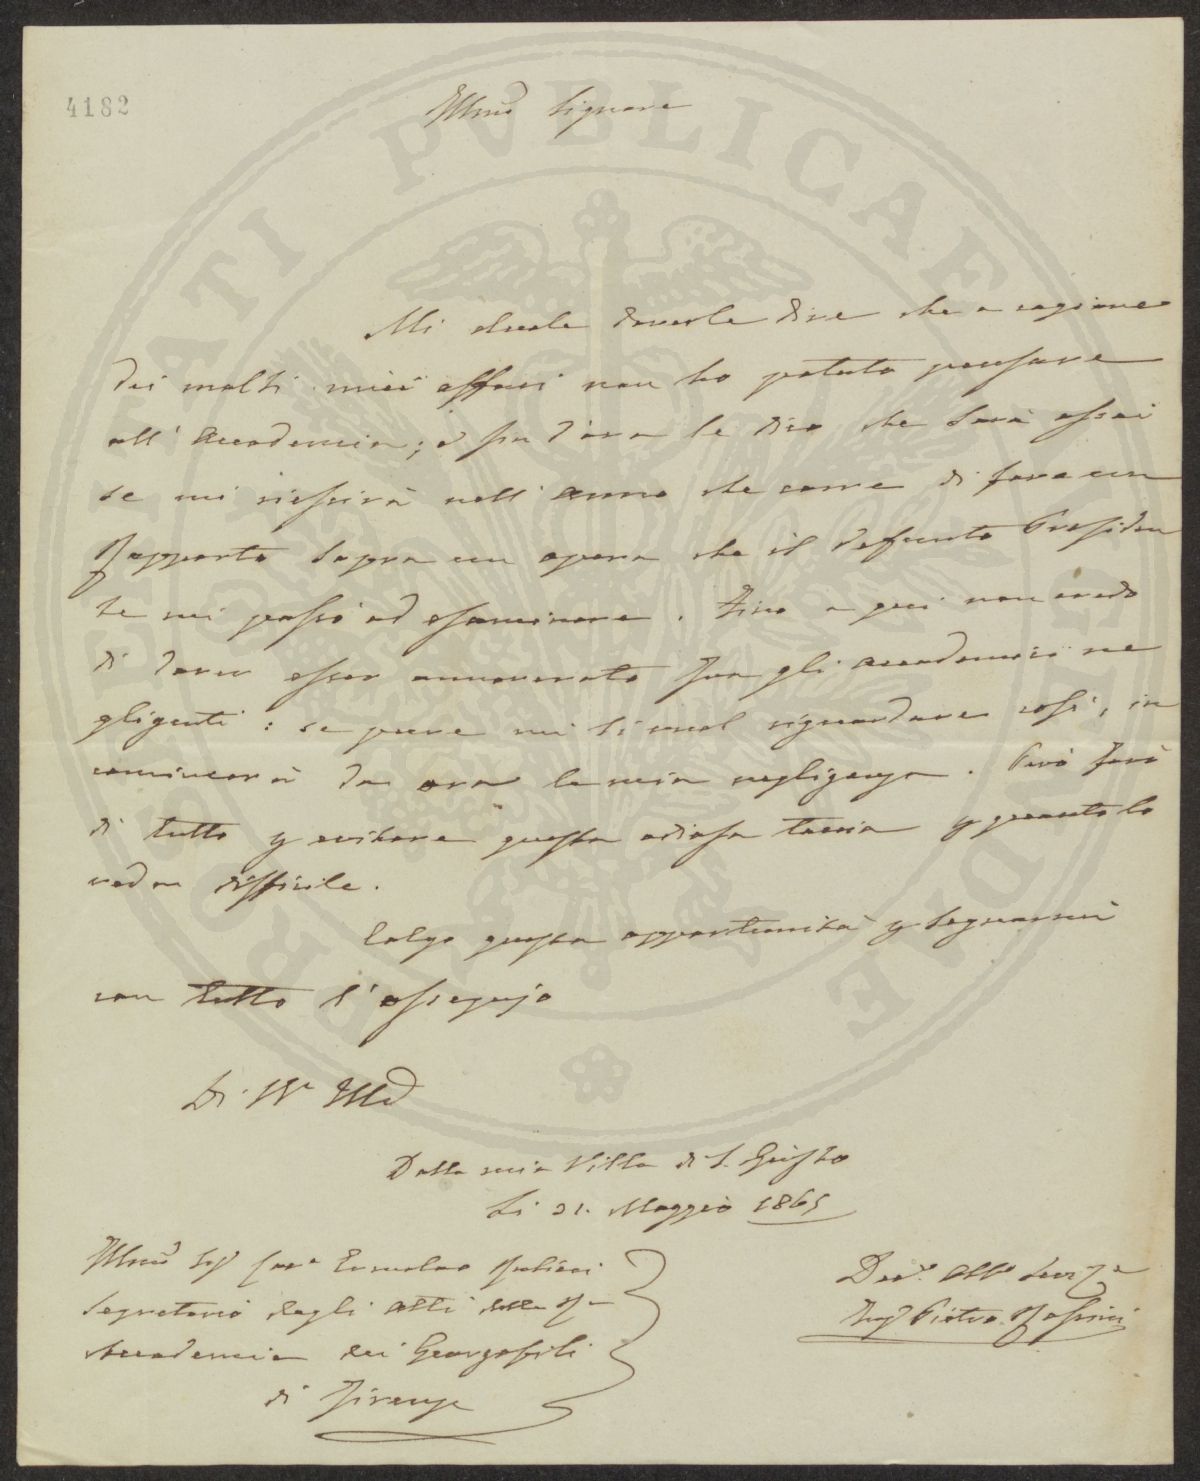 4182
Illmo Signore
Mi duole doverle dire che a cagione
dei molti miei affari non ho potuto pensare
all' Accademia; e fin d'ora le dico che sarà assai
se mi riescirà nell' anno che corre di fare un
Rapporto sopra un opera che il defunto Presiden
te mi passò ad esaminare. Fino a qui non credo
di dover esser annoverato fra gli Accademici ne
gligenti: se pure mi si vuol riguardare così, in
comincerà da ora la mia negligenza. Però farò
di tutto p evitare questa odiosa taccia p quanto lo
veda difficile.
Colgo questa opportunità p segnarmi
con tutto l'ossequio
Di Illma
Dalla mia Villa di S. Giusto
Li 21. Maggio 1865
Illmo Sigr Cave Rubieri
Segretario degli Atti della Re
Accademia dei Georgofili
di Firenze
Devmo Obbmo Servre
Ingr Pietro Rossini
PVBLICAE